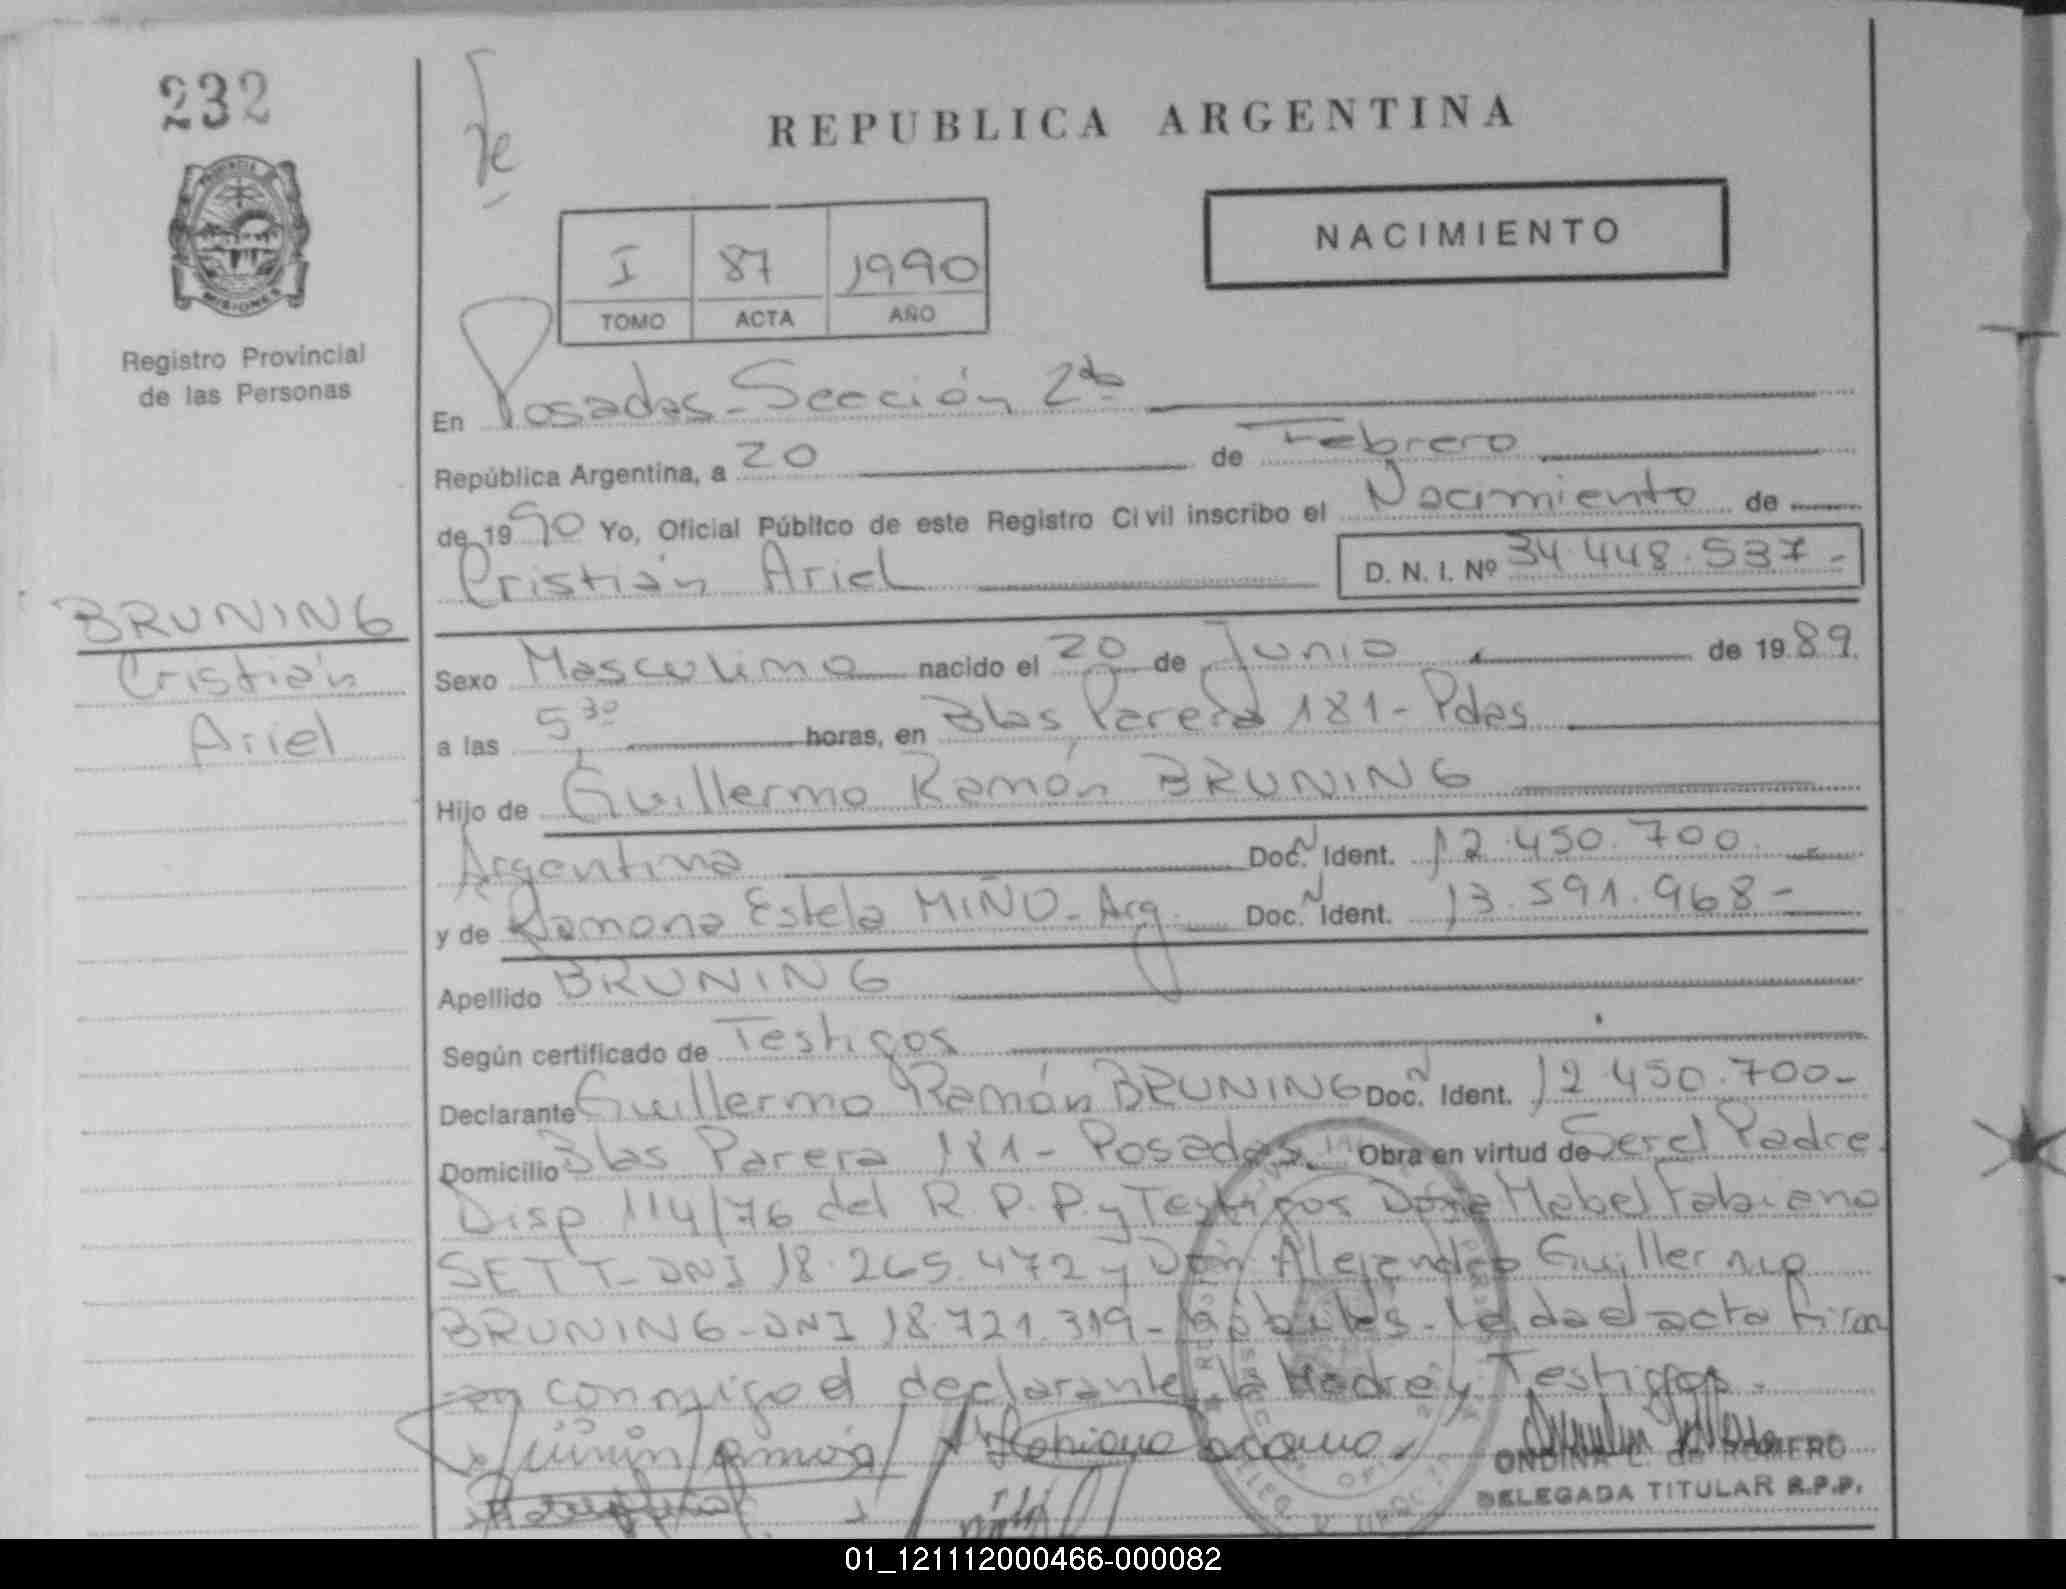 232
PROVINCIA
MISIONES
Registro Provincial
de las Personas
REPUBLICA ARGENTINA
NACIMIENTO
I 87 1990
TOMO ACTA AÑO
En Posadas - Sección 2da
República Argentina, a 20 de Febrero
de 1990 Yo, Oficial Público de este Registro Civil inscribo el Nacimiento de
Cristián Ariel D. N. I. Nº 34.448.537-
BRUNING
Cristián
Ariel
Sexo Masculino nacido el 20 de Junio de 1989.
a las 5,30 horas, en Blas Parera 181 - Pdas
Hijo de Guillermo Ramón BRUNING
Argentina Doc. N Ident. 12.450.700.-
y de Ramona Estela MIÑO - Arg. Doc. N Ident. 13.591.968-
Apellido BRUNING
Según certificado de Testigos
Declarante Guillermo Ramón BRUNING Doc. N Ident. 12.450.700-
Domicilio Blas Parera 181 - Posadas. Obra en virtud de Ser el Padre
Disp. 114/76 del R.P.P. y Testigos Doña Mabel Fabiana
SETT - DNI 18.265.472 y Don Alejandro Guillermo
BRUNING - DNI 18.721.319 - hábiles - Leída el acta firm
an conmigo el declarante, la Madre y Testigos.
ONDINA L. de ROMERO
DELEGADA TITULAR R.P.P.
01_121112000466-000082